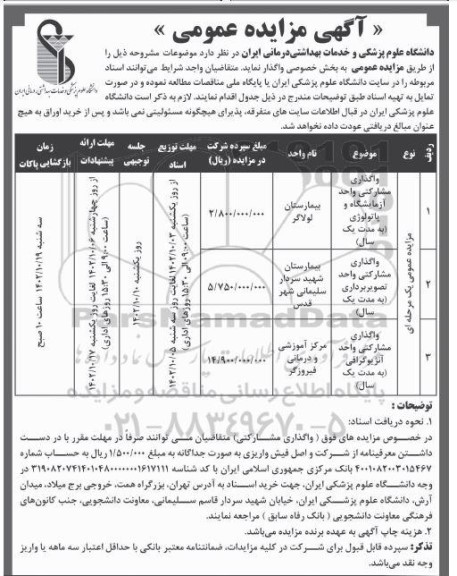 « آگهی مزایده عمومی »
دانشگاه علوم پزشکی و خدمات بهداشتی درمانی ایران
دانشگاه علوم پزشکی و خدمات بهداشتی‌درمانی ایران در نظر دارد موضوعات مشروحه ذیل را
از طریق مزایده عمومی به بخش خصوصی واگذار نماید. متقاضیان واجد شرایط می‌توانند اسناد
مربوطه را در سایت دانشگاه علوم پزشکی ایران یا پایگاه ملی مناقصات مطالعه نموده و در صورت
تمایل به تهیه اسناد طبق توضیحات مندرج در ذیل جدول اقدام نمایند. لازم به ذکر است دانشگاه
علوم پزشکی ایران در قبال اطلاعات سایت های متفرقه، پذیرای هیچگونه مسئولیتی نمی باشد و پس از خرید اوراق به هیچ
عنوان مبالغ دریافتی عودت داده نخواهد شد.
ردیف
نوع
موضوع
نام واحد
مبلغ سپرده شرکت
در مزایده (ریال)
مهلت توزیع
اسناد
جلسه
توجیهی
مهلت ارائه
پیشنهادات
زمان
بازگشایی پاکات
۱
مزایده عمومی یک مرحله ای
واگذاری
مشارکتی واحد
آزمایشگاه و
پاتولوژی
(به مدت یک
سال)
بیمارستان
لولاگر
۲/۸۰۰/۰۰۰/۰۰۰
از روز یکشنبه ۱۴۰۲/۱۰/۰۳ لغایت روز سه شنبه ۱۴۰۲/۱۰/۰۵
(ساعت ۰۹:۰۰ الی ۱۵:۳۰ روزهای اداری)
روز یکشنبه ۱۴۰۲/۱۰/۱۰
از روز چهارشنبه ۱۴۰۲/۱۰/۰۶ لغایت روز یکشنبه ۱۴۰۲/۱۰/۱۷
(ساعت ۹:۰۰ الی ۱۵:۳۰ روزهای اداری)
سه شنبه ۱۴۰۲/۱۰/۱۹ ساعت ۱۰ صبح
۲
واگذاری
مشارکتی واحد
تصویربرداری
(به مدت یک
سال)
بیمارستان
شهید سردار
سلیمانی شهر
قدس
۵/۷۵۰/۰۰۰/۰۰۰
۳
واگذاری
مشارکتی واحد
آنژیوگرافی
(به مدت یک
سال)
مرکز آموزشی
و درمانی
فیروزگر
۱۴/۹۰۰/۰۰۰/۰۰۰
ParsNamadData
پایگاه اطلاع رسانی مناقصه و مزایده
۰۲۱-۸۸۳۴۹۶۷۰-۵
توضیحات :
۱. نحوه دریافت اسناد:
در خصوص مزایده های فوق ( واگذاری مشارکتی) متقاضیان می توانند صرفاً در مهلت مقرر با در دست
داشتن معرفینامه از شرکت و اصل فیش واریزی به صورت جداگانه به مبلغ ۱/۵۰۰/۰۰۰ ریال به حساب شماره
۴۰۰۱۰۸۲۰۰۳۰۱۵۴۶۷ بانک مرکزی جمهوری اسلامی ایران با کد شناسه ۳۱۹۰۸۲۰۷۴۱۴۰۱۰۴۸۰۰۰۰۰۰۱۶۱۷۱۱۱ در
وجه دانشگاه علوم پزشکی ایران، جهت خرید اسناد به آدرس تهران، بزرگراه همت، خروجی برج میلاد، میدان
آرش، دانشگاه علوم پزشکی ایران، خیابان شهید سردار قاسم سلیمانی، معاونت دانشجویی، جنب کانون‌های
فرهنگی معاونت دانشجویی ( بانک رفاه سابق ) مراجعه نمایند.
۲. هزینه چاپ آگهی به عهده برنده مزایده می‌باشد.
تذکر: سپرده قابل قبول برای شرکت در کلیه مزایدات، ضمانتنامه معتبر بانکی با حداقل اعتبار سه ماهه یا واریز
وجه نقد می‌باشد.